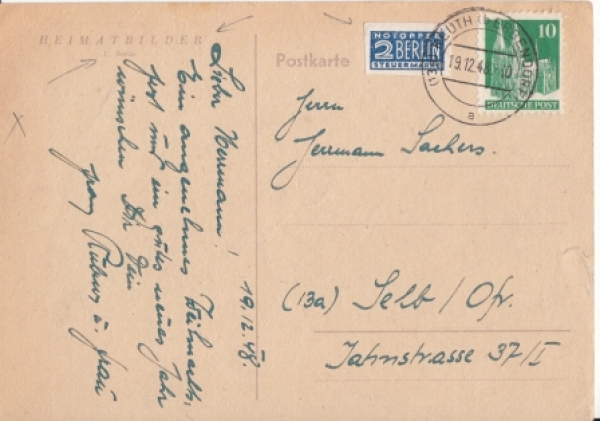 HEIMATBILDER
Postkarte
NOTOPFER
2 BERLIN
STEUERMARKE
19.12.48
a
10
DEUTSCHE POST
19.12.48.
Lieber Herrmann!
Ein angenehmes Weihnachts-
fest und ein gutes neues Jahr
wünschen Dir Dein
Franz u. Frau
Herrn
Herrmann Sachers.
(13a) Selb / Ofr.
Jahnstrasse 37/I